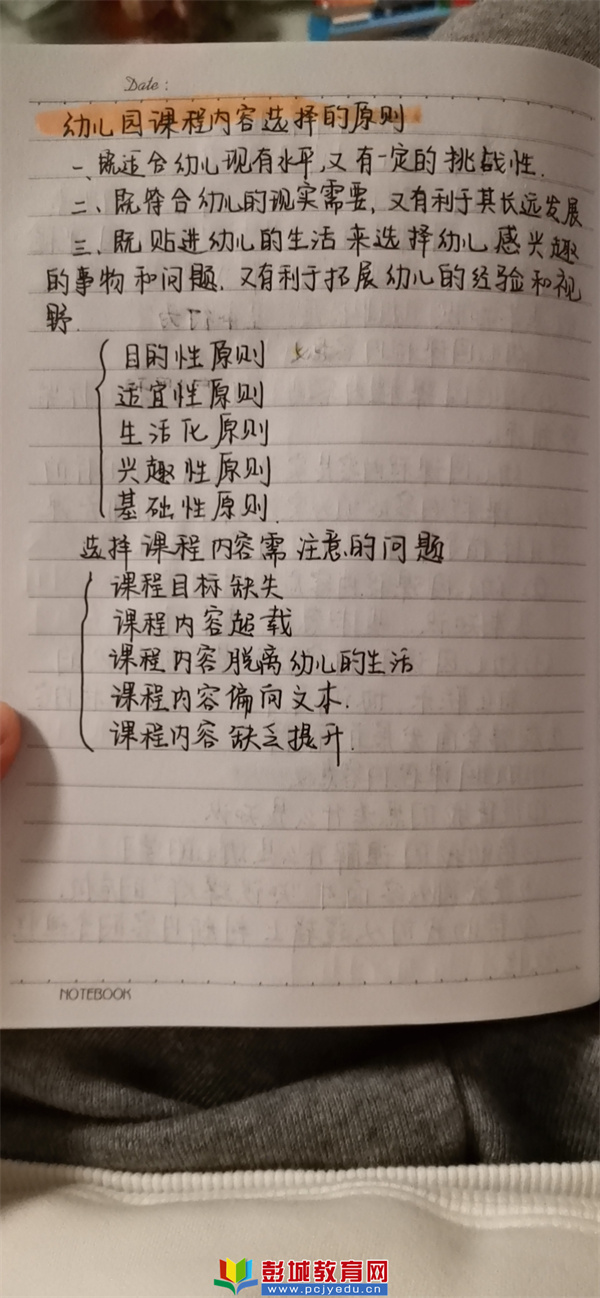 Date:
幼儿园课程内容选择的原则
一、既适合幼儿现有水平,又有一定的挑战性.
二、既符合幼儿的现实需要,又有利于其长远发展
三、既贴进幼儿的生活来选择幼儿感兴趣
的事物和问题,又有利于拓展幼儿的经验和视
野.
目的性原则
适宜性原则
生活化原则
兴趣性原则
基础性原则.
选择课程内容需注意的问题
课程目标缺失
课程内容超载
课程内容脱离幼儿的生活
课程内容偏向文本.
课程内容缺乏提升.
NOTEBOOK
彭城教育网
www.pcjyedu.cn